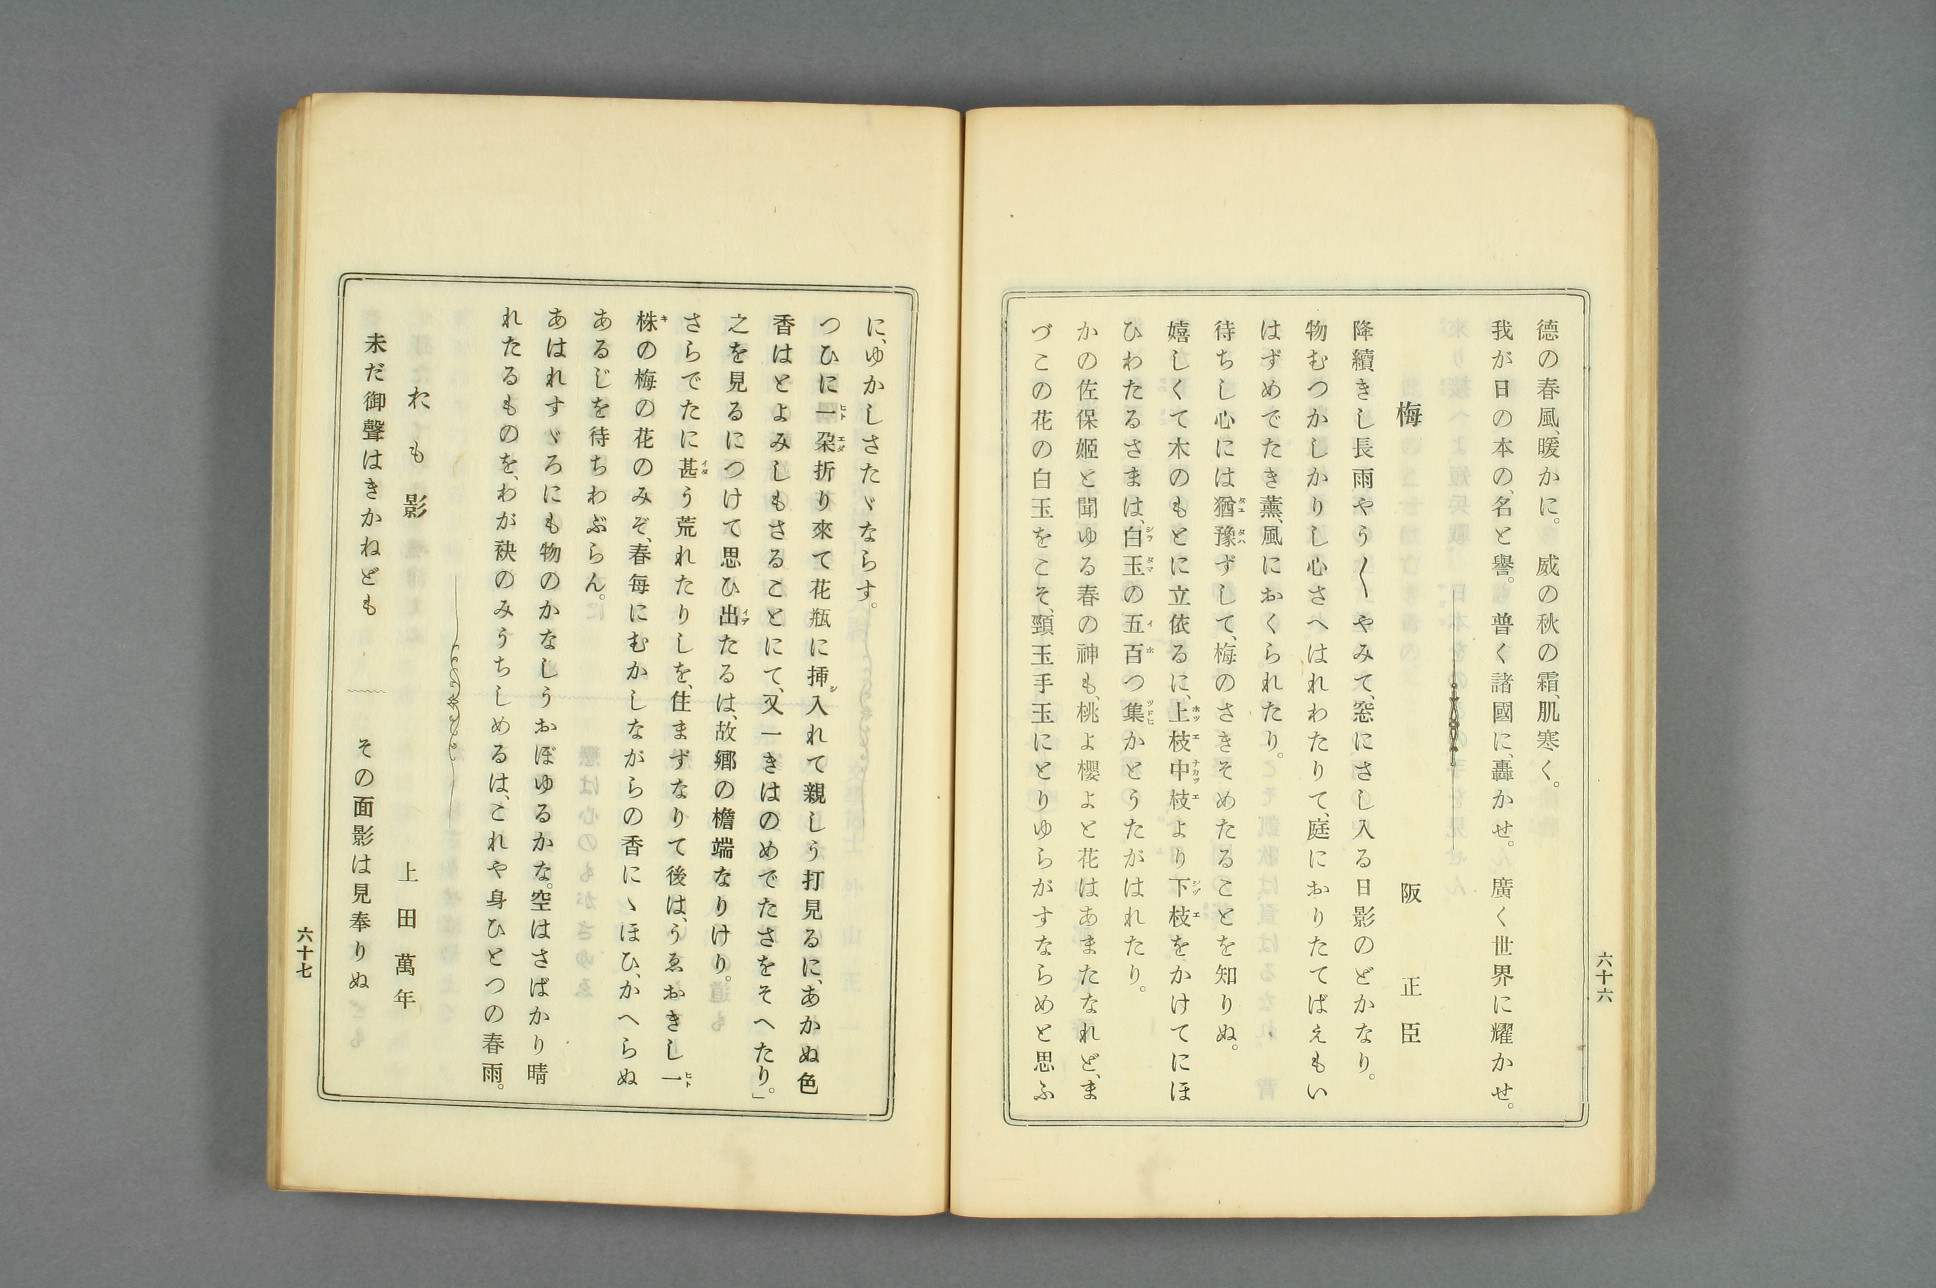 德の春風、暖かに。威の秋の霜、肌寒く。
我が日の本の、名と譽。普く諸國に、轟かせ。廣く世界に耀かせ。
梅　阪正臣
降續きし長雨やう〱やみて、窓にさし入る日影のどかなり。
物むつかしかりし心さへはれわたりて、庭におりたてばえもい
はずめでたき薰、風におくられたり。
待ちし心には猶豫ずして、梅のさきそめたることを知りぬ。
嬉しくて木のもとに立依るに、上枝中枝より下枝をかけてにほ
ひわたるさまは、白玉の五百つ集かとうたがはれたり。
かの佐保姬と聞ゆる春の神も、桃よ櫻よと花はあまたなれど、ま
づこの花の白玉をこそ、頸玉手玉にとりゆらがすならめと思ふ
六十六
に、ゆかしさたゞならす。
つひに一朶折り來て花瓶に揷入れて親しう打見るに、あかぬ色
香はとよみしもさることにて、又一きはのめでたさをそへたり。」
之を見るにつけて思ひ出たるは、故鄕の檐端なりけり。
さらでたに甚う荒れたりしを、住まずなりて後は、うゑおきし一
株の梅の花のみぞ、春每にむかしながらの香にゝほひ、かへらぬ
あるじを待ちわぶらん。
あはれすゞろにも物のかなしうおぼゆるかな。空はさばかり晴
れたるものを、わが袂のみうちしめるは、これや身ひとつの春雨。
おも影　上田萬年
未だ御聲はきかねども　その面影は見奉りぬ
六十七